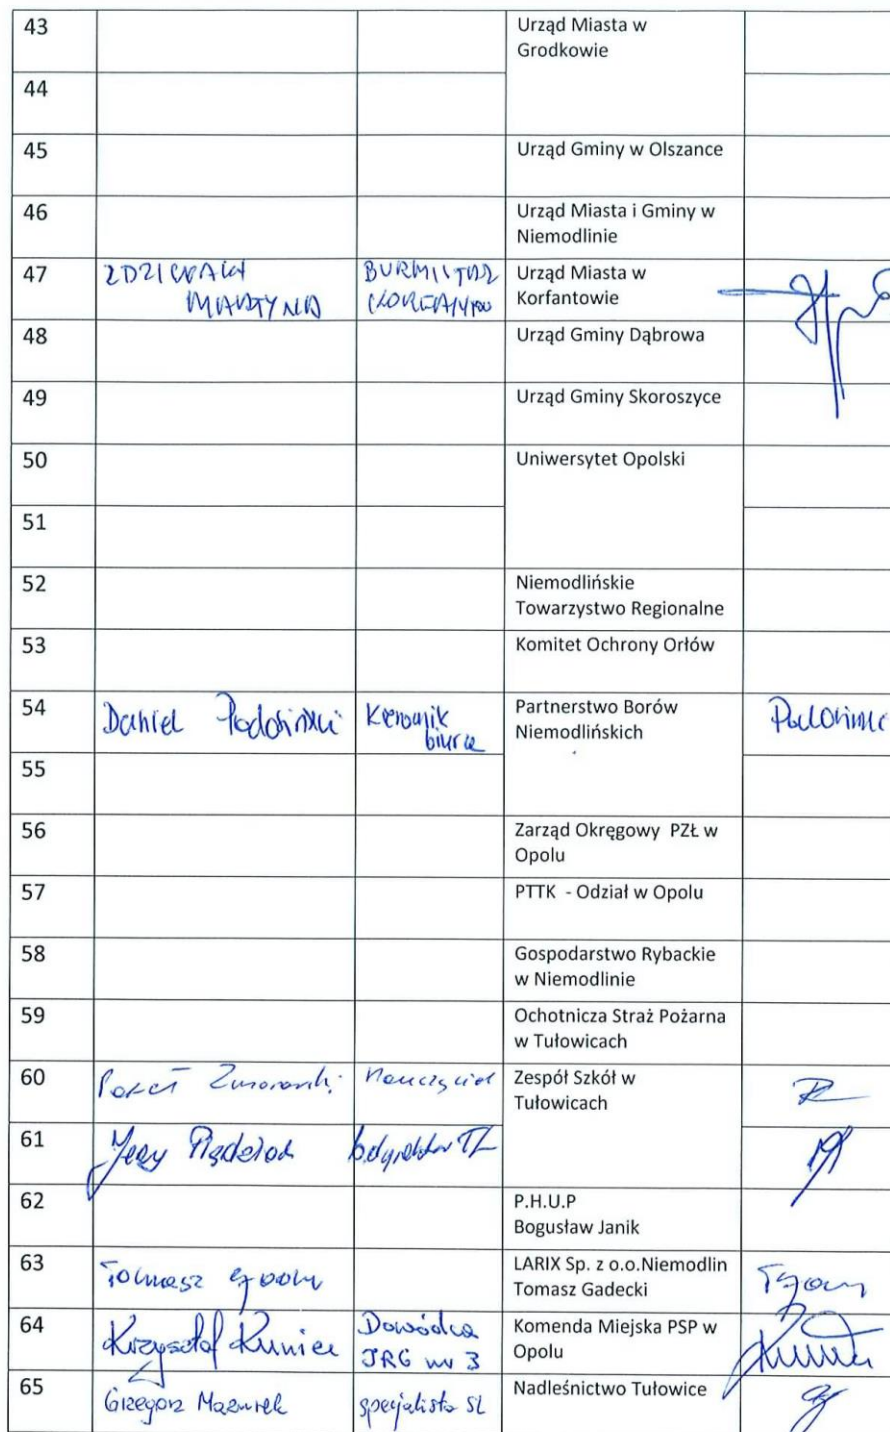 43 Urząd Miasta w
Grodkowie
44
45 Urząd Gminy w Olszance
46 Urząd Miasta i Gminy w
Niemodlinie
47 BURMISTRZ Urząd Miasta w
MARTYNA Korfantowie
48 Urząd Gminy Dąbrowa
49 Urząd Gminy Skoroszyce
50 Uniwersytet Opolski
51
52 Niemodlińskie
Towarzystwo Regionalne
53 Komitet Ochrony Orłów
54 Daniel Podobiński Kierownik Partnerstwo Borów
biura Niemodlińskich
55
56 Zarząd Okręgowy PZŁ w
Opolu
57 PTTK - Odział w Opolu
58 Gospodarstwo Rybackie
w Niemodlinie
59 Ochotnicza Straż Pożarna
w Tułowicach
60 nauczyciel Zespół Szkół w
Tułowicach
61 Jerzy
62 P.H.U.P
Bogusław Janik
63 Tomasz LARIX Sp. z o.o.Niemodlin
Tomasz Gadecki
64 Krzysztof Kuniec Dowódca Komenda Miejska PSP w
JRG nr 3 Opolu
65 Grzegorz Mazurek specjalista SL Nadleśnictwo Tułowice